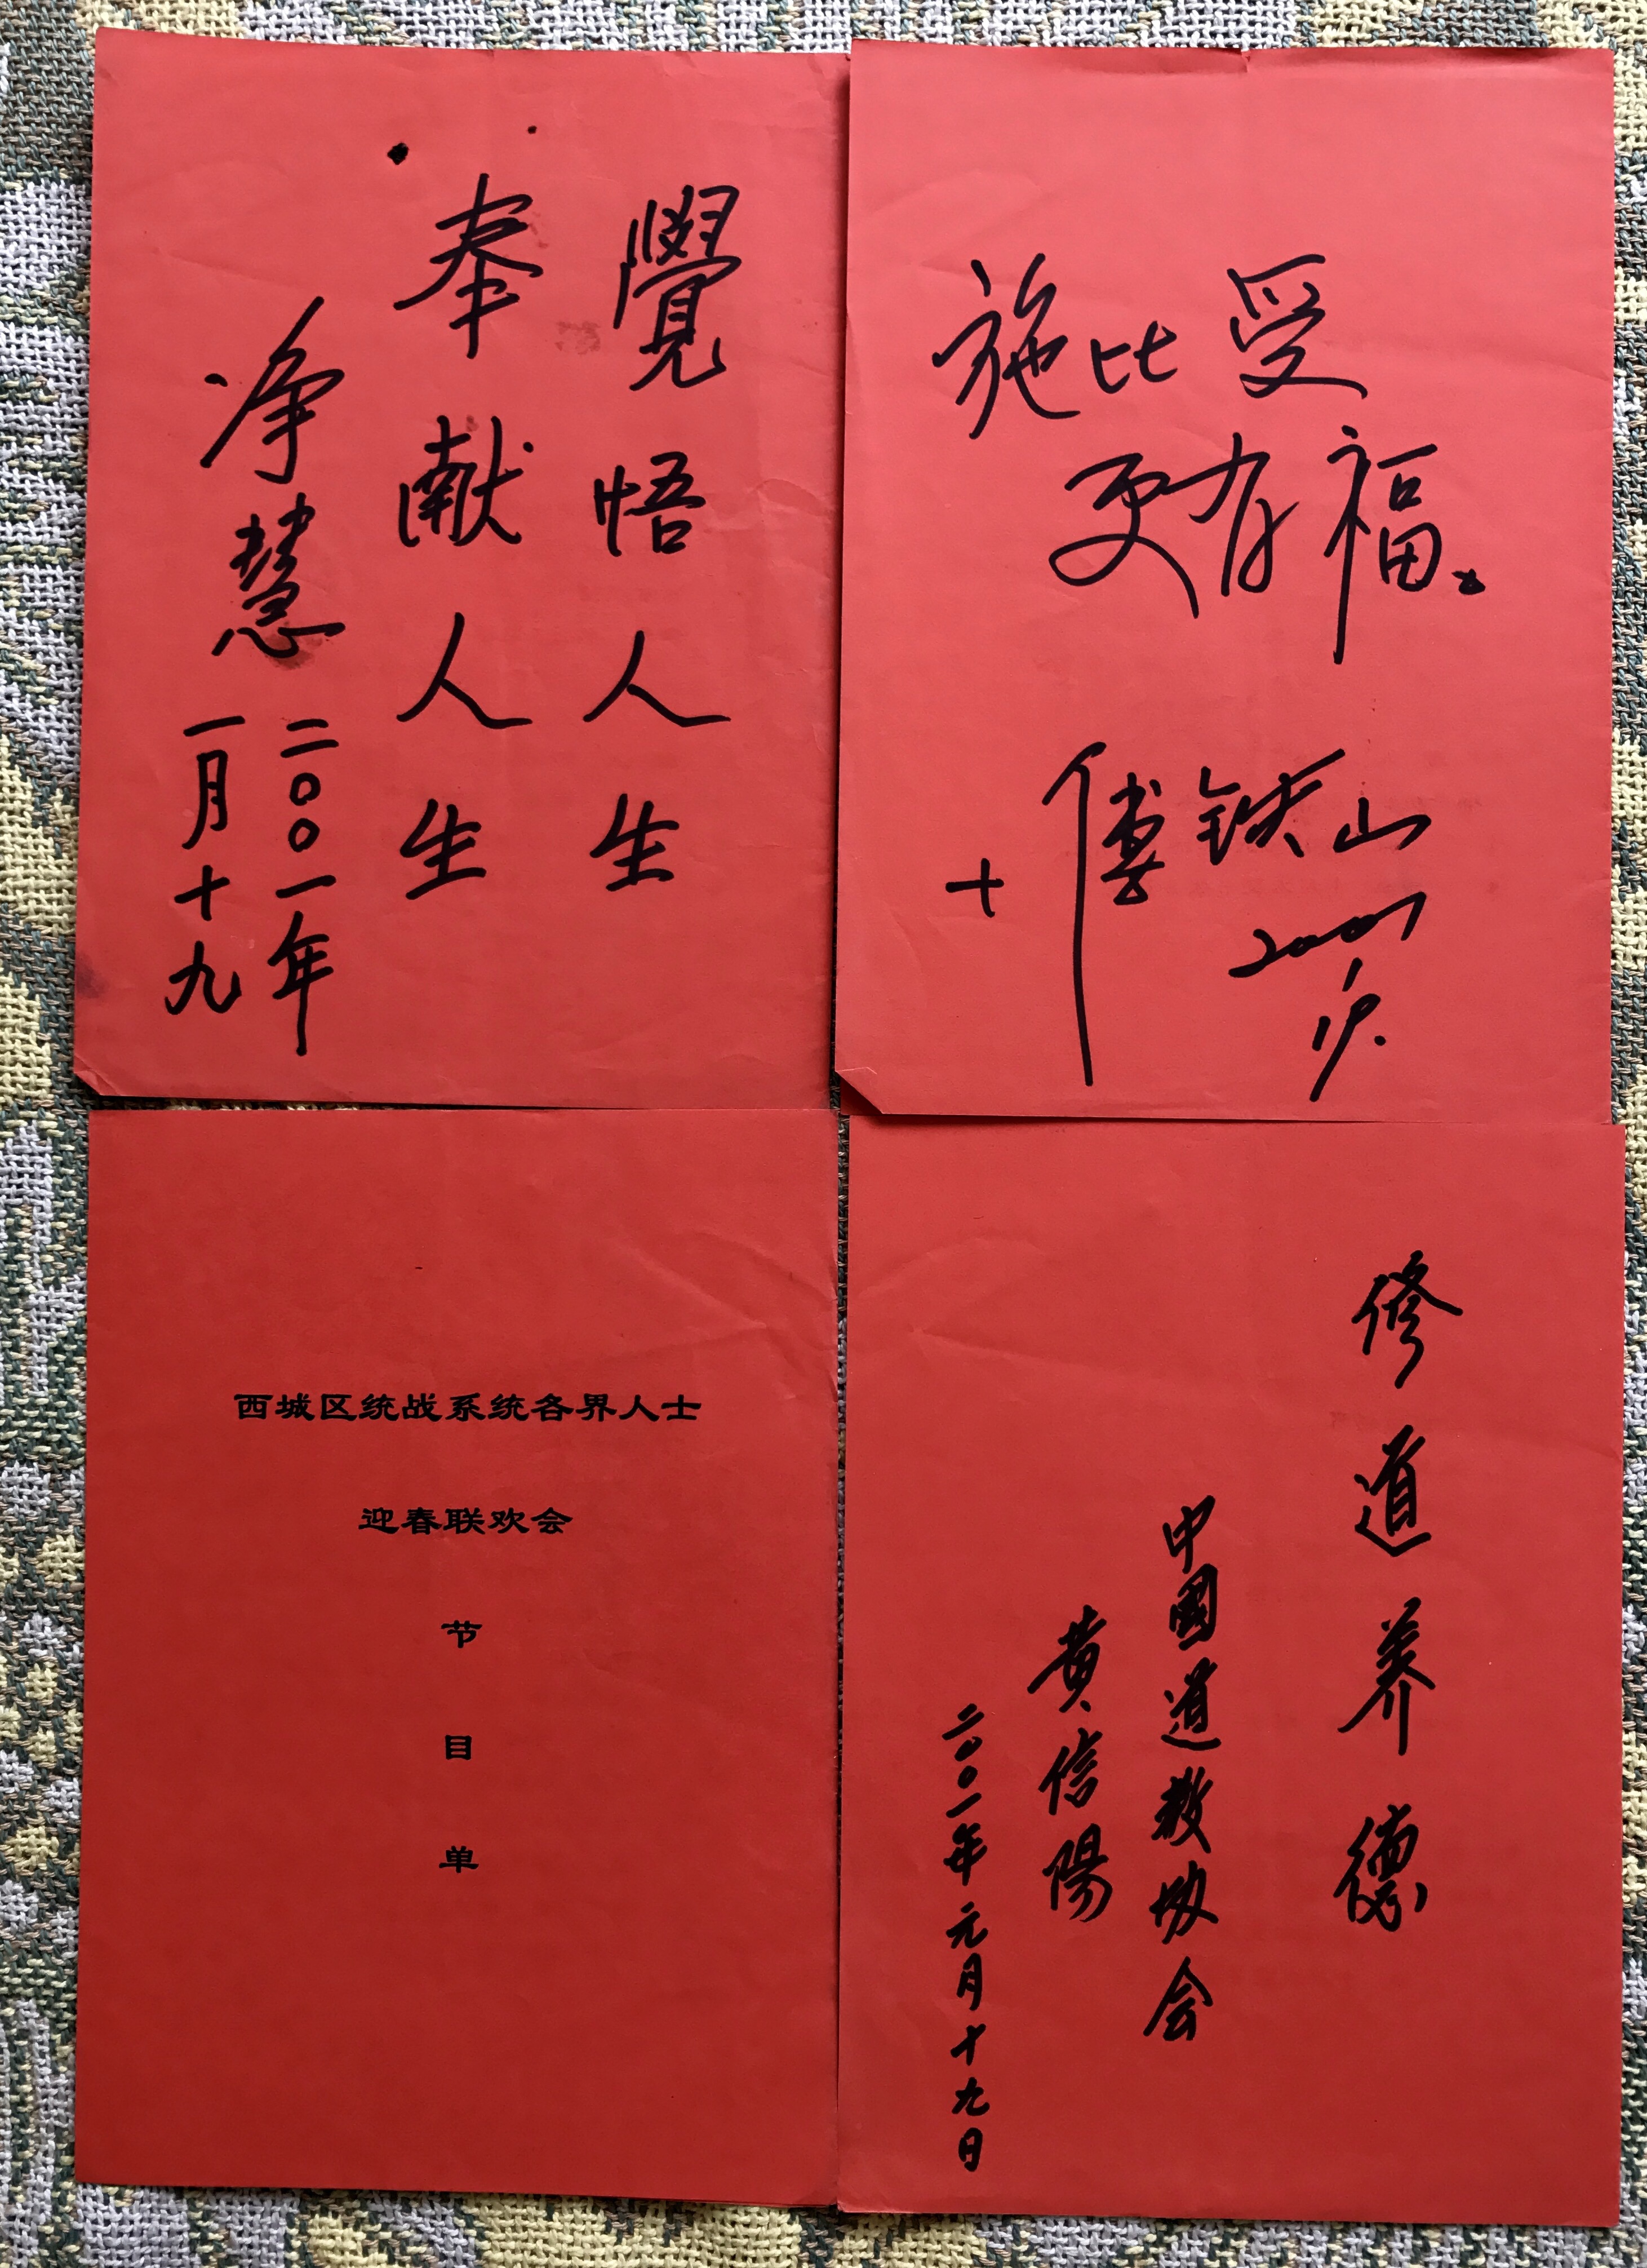 覺悟人生
奉献人生
净慧
二〇〇一年
一月十九
施比受
更有福。
十傅铁山
2001
西城区统战系统各界人士
迎春联欢会
节
目
单
修道养德
中國道教协会
黄信陽
二〇〇一年元月十九日